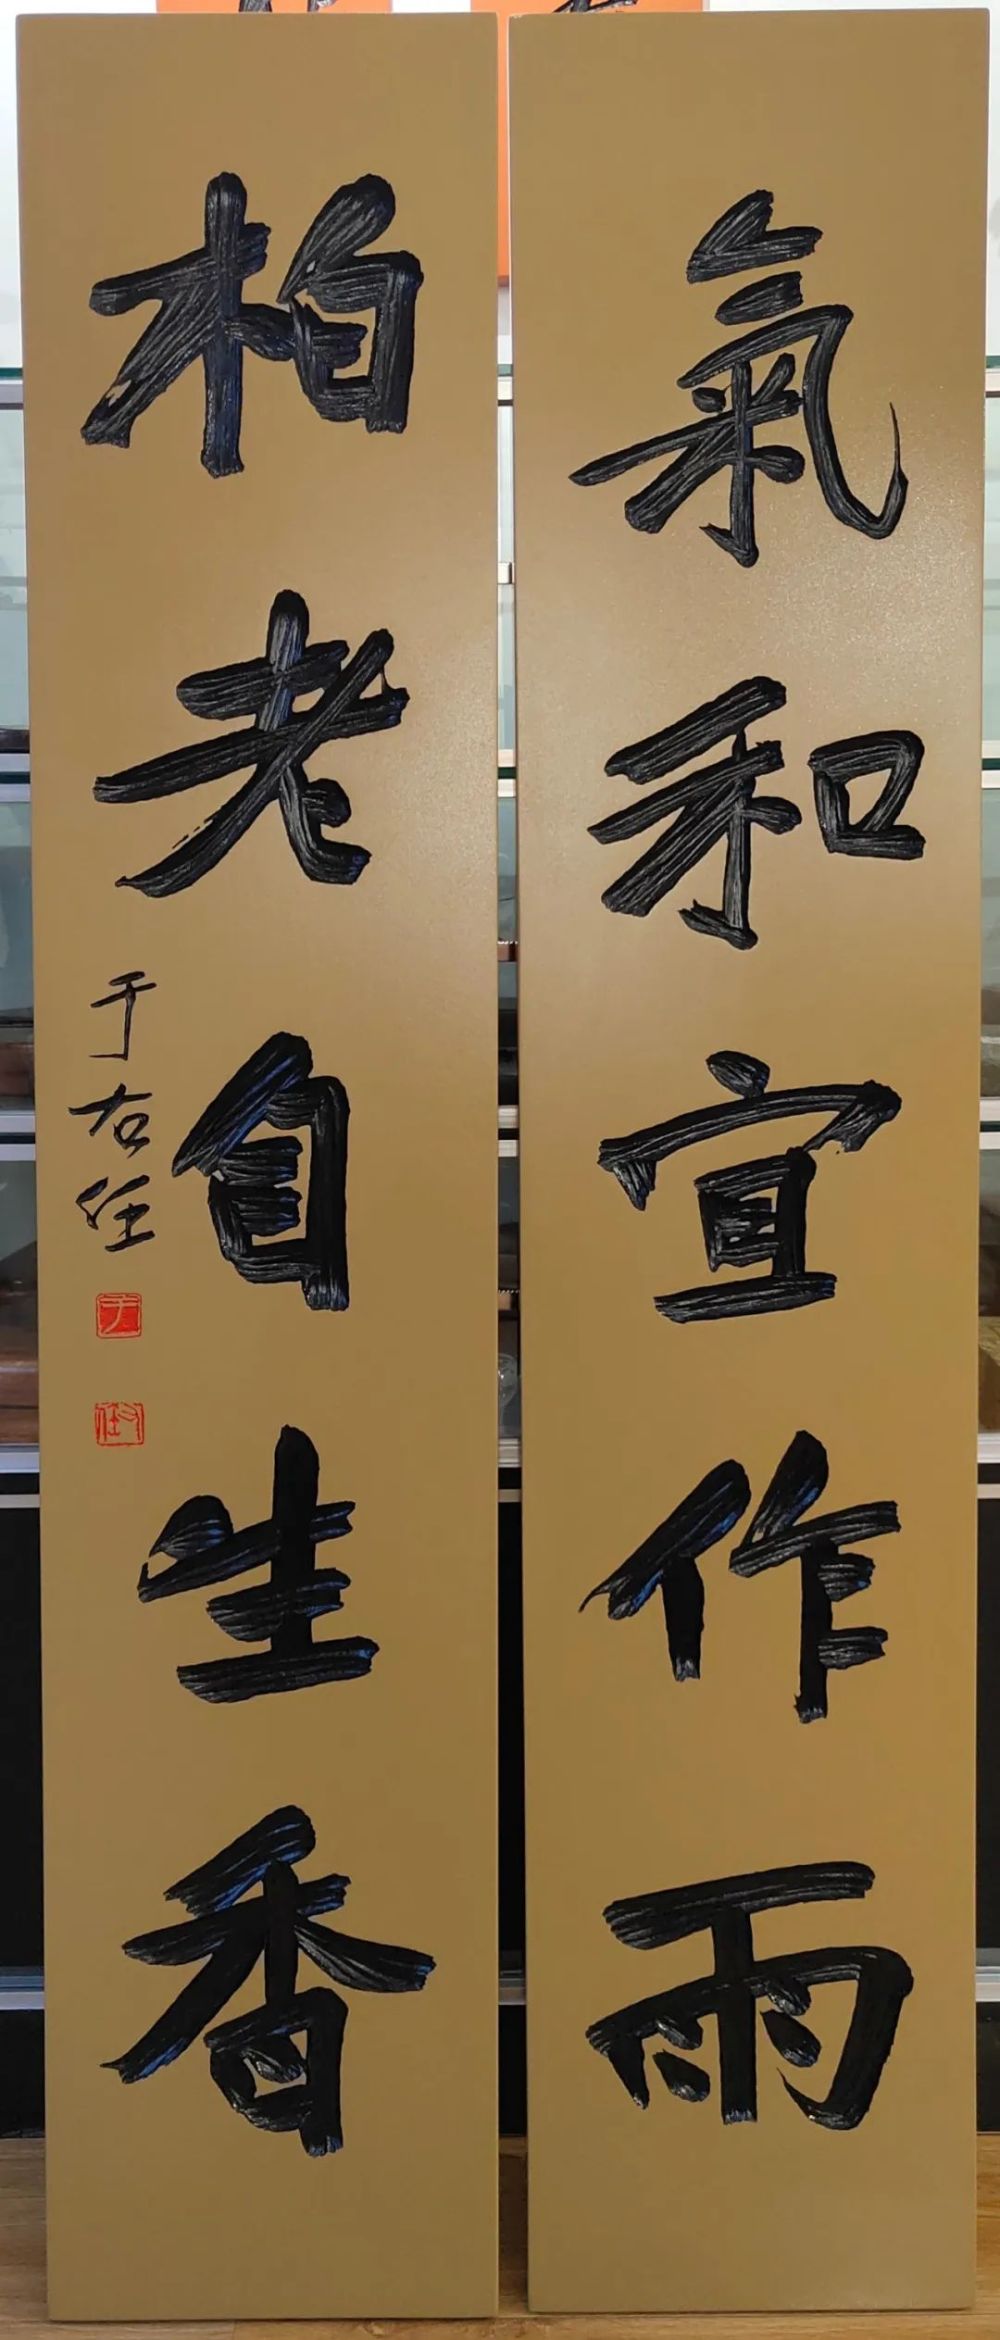 氣和宜作雨
柏老自生香
于右任